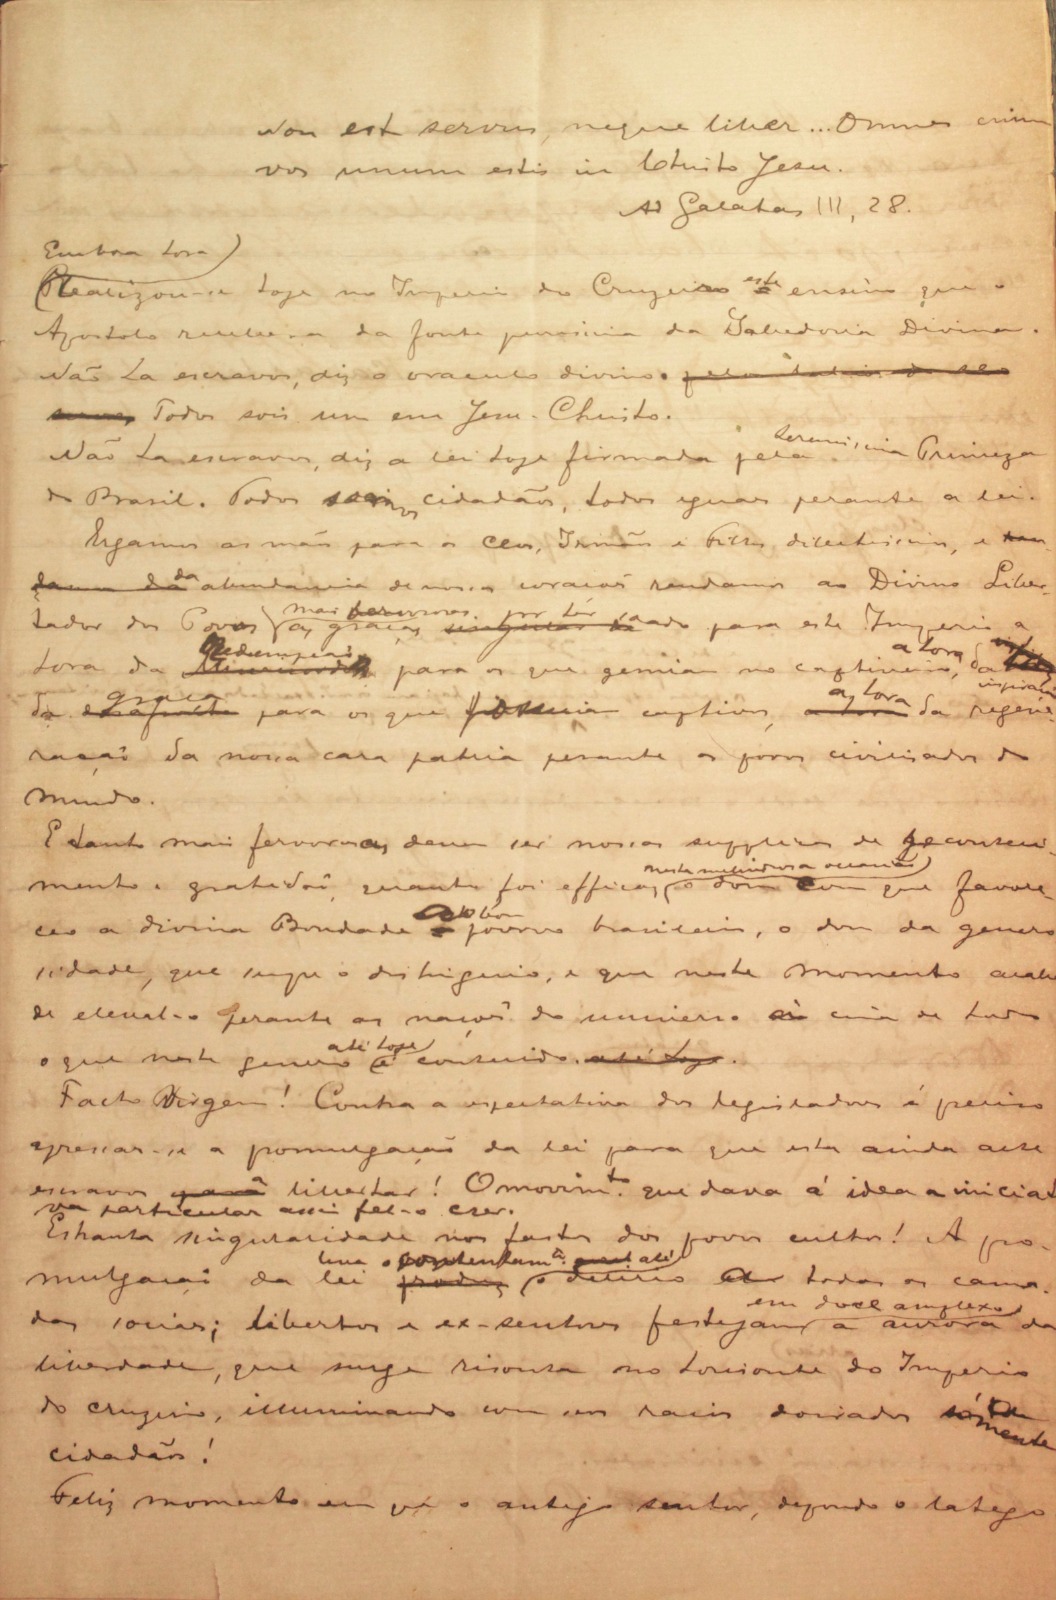 Non est servus, neque liber... Omnes enim
vos unum estis in Christo Jesu.
Ad Galatas III, 28.
Embora hora
Realizou-se hoje no Imperio do Cruzeiro este ensino que o
Apostolo recebera da fonte purissima da Sabedoria Divina.
Não ha escravos, diz o oraculo divino.
Todos sois um em Jesu-Christo.
Não ha escravos, diz a lei hoje firmada pela serenissima Princeza
do Brasil. Todos cidadãos, todos eguaes perante a lei.
Ergamos as mãos para os Ceos, Irmãos e Filhos dilectissimos, e
da abundancia de nossos corações rendamos ao Divino Liber-
tador dos Povos mais fervorosas por ter
as graças soado para este Imperio a
Redempção a hora
hora da para os que gemiam no captiveiro, da
graça inspira-
da para os que captivos, a hora da regene-
ração da nossa cara patria perante os povos civilisados do
mundo.
E tanto mais fervorosas devem ser nossas supplicas de reconheci-
neste melindrosa occasião
mento e gratidão, quanto foi efficaz o dom com que favore-
ceo a divina Bondade o povo brasileiro, o dom da genero
sidade, que sempre o distinguio, e que neste momento acaba
de eleval-o perante as nações do universo acima de tudo
até hoje
o que neste genero é conhecido. até hoje.
Facto Virgem! Contra a espectativa dos legisladores é preciso
apressar-se a promulgação da lei para que esta ainda ache
escravos para libertar! O movimto. que dava á idea a iniciati
va particular assim fel-o crer.
Estranha singularidade nos fastos dos povos cultos! A pro-
leva o contentamto. até
mulgação da lei produz o delirio a todas as cama-
das sociaes; libertos e ex-senhores festejam em doce amplexo a aurora da
liberdade, que surge risonha no horisonte do Imperio
do cruzeiro, illuminando com seus raios doirados sómente
cidadãos!
Feliz momento em que o antigo senhor, depondo o latego